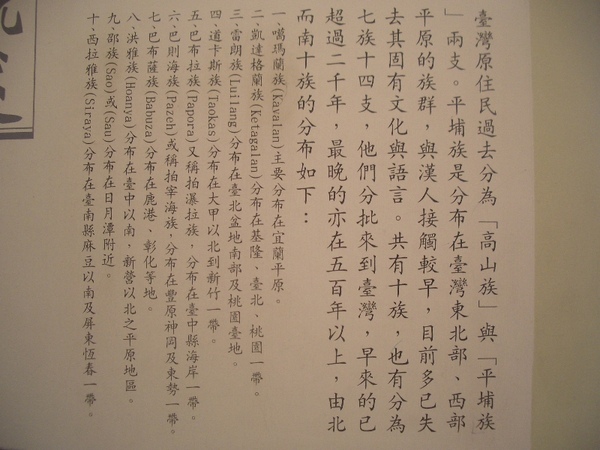 臺灣原住民過去分為「高山族」與「平埔族
」兩支。平埔族是分布在臺灣東北部、西部
平原的族群，與漢人接觸較早，目前多已失
去其固有文化與語言。共有十族，也有分為
七族十四支，他們分批來到臺灣，早來的已
超過二千年，最晚的亦在五百年以上，由北
而南十族的分布如下：
一、噶瑪蘭族(Kavalan)主要分布在宜蘭平原。
二、凱達格蘭族(Ketagalan)分布在基隆、臺北、桃園一帶。
三、雷朗族(Luilang)分布在臺北盆地南部及桃園臺地。
四、道卡斯族(Taokao)分布在大甲以北到新竹一帶。
五、巴布拉族(Papora)又稱拍瀑拉族，分布在臺中縣海岸一帶。
六、巴則海族(Pazeh)或稱拍宰海族，分布在豐原神岡及東勢一帶。
七、巴布薩族(Babuza)分布在鹿港、彰化等地。
八、洪雅族(Hoanya)分布在臺中以南，新營以北之平原地區。
九、邵族(Sao)或(Sau)分布在日月潭附近。
十、西拉雅族(Siraya)分布在臺南縣麻豆以南及屏東恆春一帶。